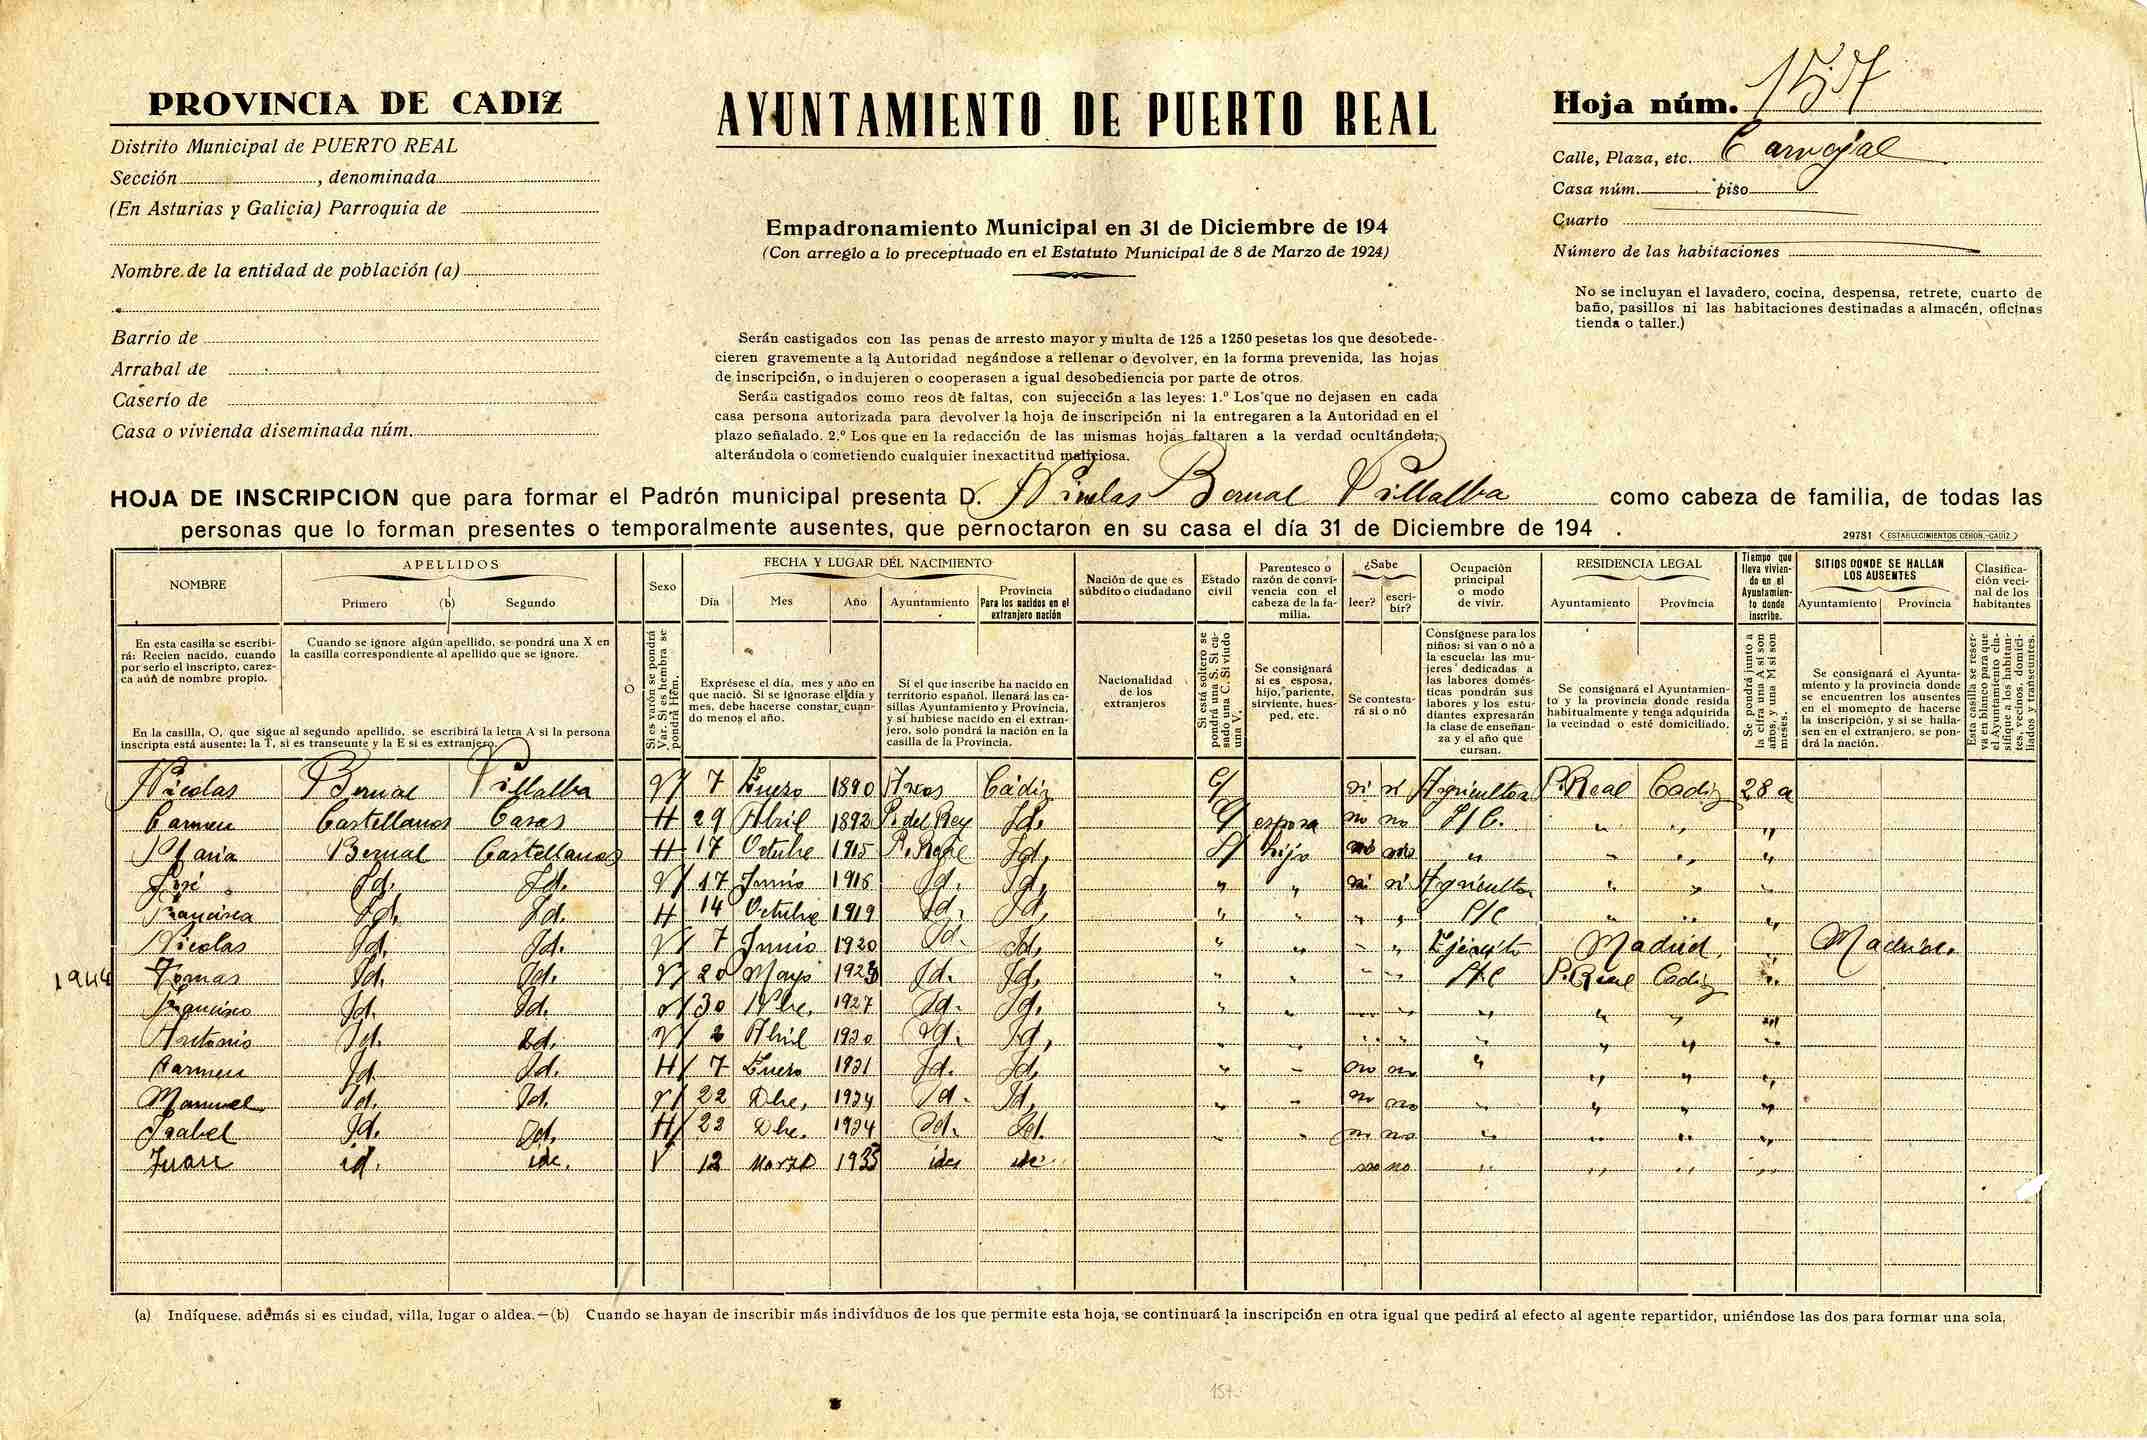 PROVINCIA DE CADIZ
Distrito Municipal de PUERTO REAL
Sección , denominada
(En Asturias y Galicia) Parroquia de
Nombre de la entidad de población (a)
Barrio de
Arrabal de
Caserío de
Casa o vivienda diseminada núm.
AYUNTAMIENTO DE PUERTO REAL
Empadronamiento Municipal en 31 de Diciembre de 194
(Con arreglo a lo preceptuado en el Estatuto Municipal de 8 de Marzo de 1924)
Serán castigados con las penas de arresto mayor y multa de 125 a 1250 pesetas los que desobede-
cieren gravemente a la Autoridad negándose a rellenar o devolver, en la forma prevenida, las hojas
de inscripción, o indujeren o cooperasen a igual desobediencia por parte de otros.
Serán castigados como reos de faltas, con sujección a las leyes: 1.º Los que no dejasen en cada
casa persona autorizada para devolver la hoja de inscripción ni la entregaren a la Autoridad en el
plazo señalado. 2.º Los que en la redacción de las mismas hojas faltaren a la verdad ocultándola,
alterándola o cometiendo cualquier inexactitud maliciosa.
Hoja núm. 157
Calle, Plaza, etc. Carvajal
Casa núm. piso
Cuarto
Número de las habitaciones
No se incluyan el lavadero, cocina, despensa, retrete, cuarto de
baño, pasillos ni las habitaciones destinadas a almacén, oficinas
tienda o taller.)
HOJA DE INSCRIPCION que para formar el Padrón municipal presenta D. Nicolas Bernal Villalba como cabeza de familia, de todas las
personas que lo forman presentes o temporalmente ausentes, que pernoctaron en su casa el día 31 de Diciembre de 194 .
29781 ESTABLECIMIENTOS CERON.-CADIZ
NOMBRE
APELLIDOS
Primero (b) Segundo
Sexo
FECHA Y LUGAR DEL NACIMIENTO
Día Mes Año Ayuntamiento Provincia
Para los nacidos en el
extranjero nación
Nación de que es
súbdito o ciudadano
Estado
civil
Parentesco o
razón de convi-
vencia con el
cabeza de la fa-
milia.
¿Sabe
leer? escri-
bir?
Ocupación
principal
o modo
de vivir.
RESIDENCIA LEGAL
Ayuntamiento Provincia
Tiempo que
lleva vivien-
do en el
Ayuntamien-
to donde
inscribe.
SITIOS DONDE SE HALLAN
LOS AUSENTES
Ayuntamiento Provincia
Clasifica-
ción veci-
nal de los
habitantes
En esta casilla se escribi-
rá: Recien nacido, cuando
por serlo el inscripto, carez-
ca aún de nombre propio.
Cuando se ignore algún apellido, se pondrá una X en
la casilla correspondiente al apellido que se ignore.
En la casilla, O, que sigue al segundo apellido, se escribirá la letra A si la persona
inscripta está ausente: la T, si es transeunte y la E si es extranjero.
O
Si es varón se pondrá
Var. Si es hembra se
pondrá Hem.
Exprésese el día, mes y año en
que nació. Si se ignorase el día y
mes, debe hacerse constar, cuan-
do menos el año.
Si el que inscribe ha nacido en
territorio español, llenará las ca-
sillas Ayuntamiento y Provincia,
y si hubiese nacido en el extran-
jero, solo pondrá la nación en la
casilla de la Provincia.
Nacionalidad
de los
extranjeros
Si está soltero se
pondrá una S. Si ca-
sado una C. Si viudo
una V.
Se consignará
si es esposa,
hijo, pariente,
sirviente, hues-
ped, etc.
Se contesta-
rá si o nó
Consígnese para los
niños: si van o nó a
la escuela: las mu-
jeres dedicadas a
las labores domés-
ticas pondrán sus
labores y los estu-
diantes expresarán
la clase de enseñan-
za y el año que
cursan.
Se consignará el Ayuntamien-
to y la provincia donde resida
habitualmente y tenga adquirida
la vecindad o esté domiciliado.
Se pondrá junto a
la cifra una A si son
años, y una M si son
meses.
Se consignará el Ayunta-
miento y la provincia donde
se encuentren los ausentes
en el momento de hacerse
la inscripción, y si se halla-
sen en el extranjero, se pon-
drá la nación.
Esta casilla se reser-
va en blanco para que
el Ayuntamiento cla-
sifique a los habitan-
tes, vecinos, domici-
liados y transeuntes.
Nicolas Bernal Villalba V 7 Enero 1890 Arcos Cádiz C/ si si Agricultor P. Real Cadiz 28 a
Carmen Castellanos Casas H 29 Abril 1892 P. del Rey Id. C/ esposa no no S/C. " " "
Maria Bernal Castellanos H 17 Octubre 1915 P. Real Id. S/ hijo no no " " " "
José Id. Id. V 17 Junio 1916 Id. Id. " " si si Agricultor " " "
Francisca Id. Id. H 14 Octubre 1919 Id. Id. " " " " S/C " " "
Nicolas Id. Id. V 7 Junio 1920 Id. Id. " " " " Ejército Madrid, " Madrid.
1944 Tomas Id. Id. V 20 Mayo 1923 Id. Id. " " " " S/C P. Real Cadiz "
Francisco Id. Id. V 30 Nbre. 1927 Id. Id. " " " " " " " "
Antonio Id. Id. V 2 Abril 1930 Id. Id. " " " " " " " "
Carmen Id. Id. H 7 Enero 1931 Id. Id. " " no no " " " "
Manuel Id. Id. V 22 Dbre. 1934 Id. Id. " " no no " " " "
Isabel Id. Id. H 22 Dbre. 1934 Id. Id. " " no no " " " "
Juan id. id. V 12 Marzo 1935 id. id. no no " " " "
(a) Indíquese, además si es ciudad, villa, lugar o aldea.—(b) Cuando se hayan de inscribir más indivíduos de los que permite esta hoja, se continuará la inscripción en otra igual que pedirá al efecto al agente repartidor, uniéndose las dos para formar una sola.
157